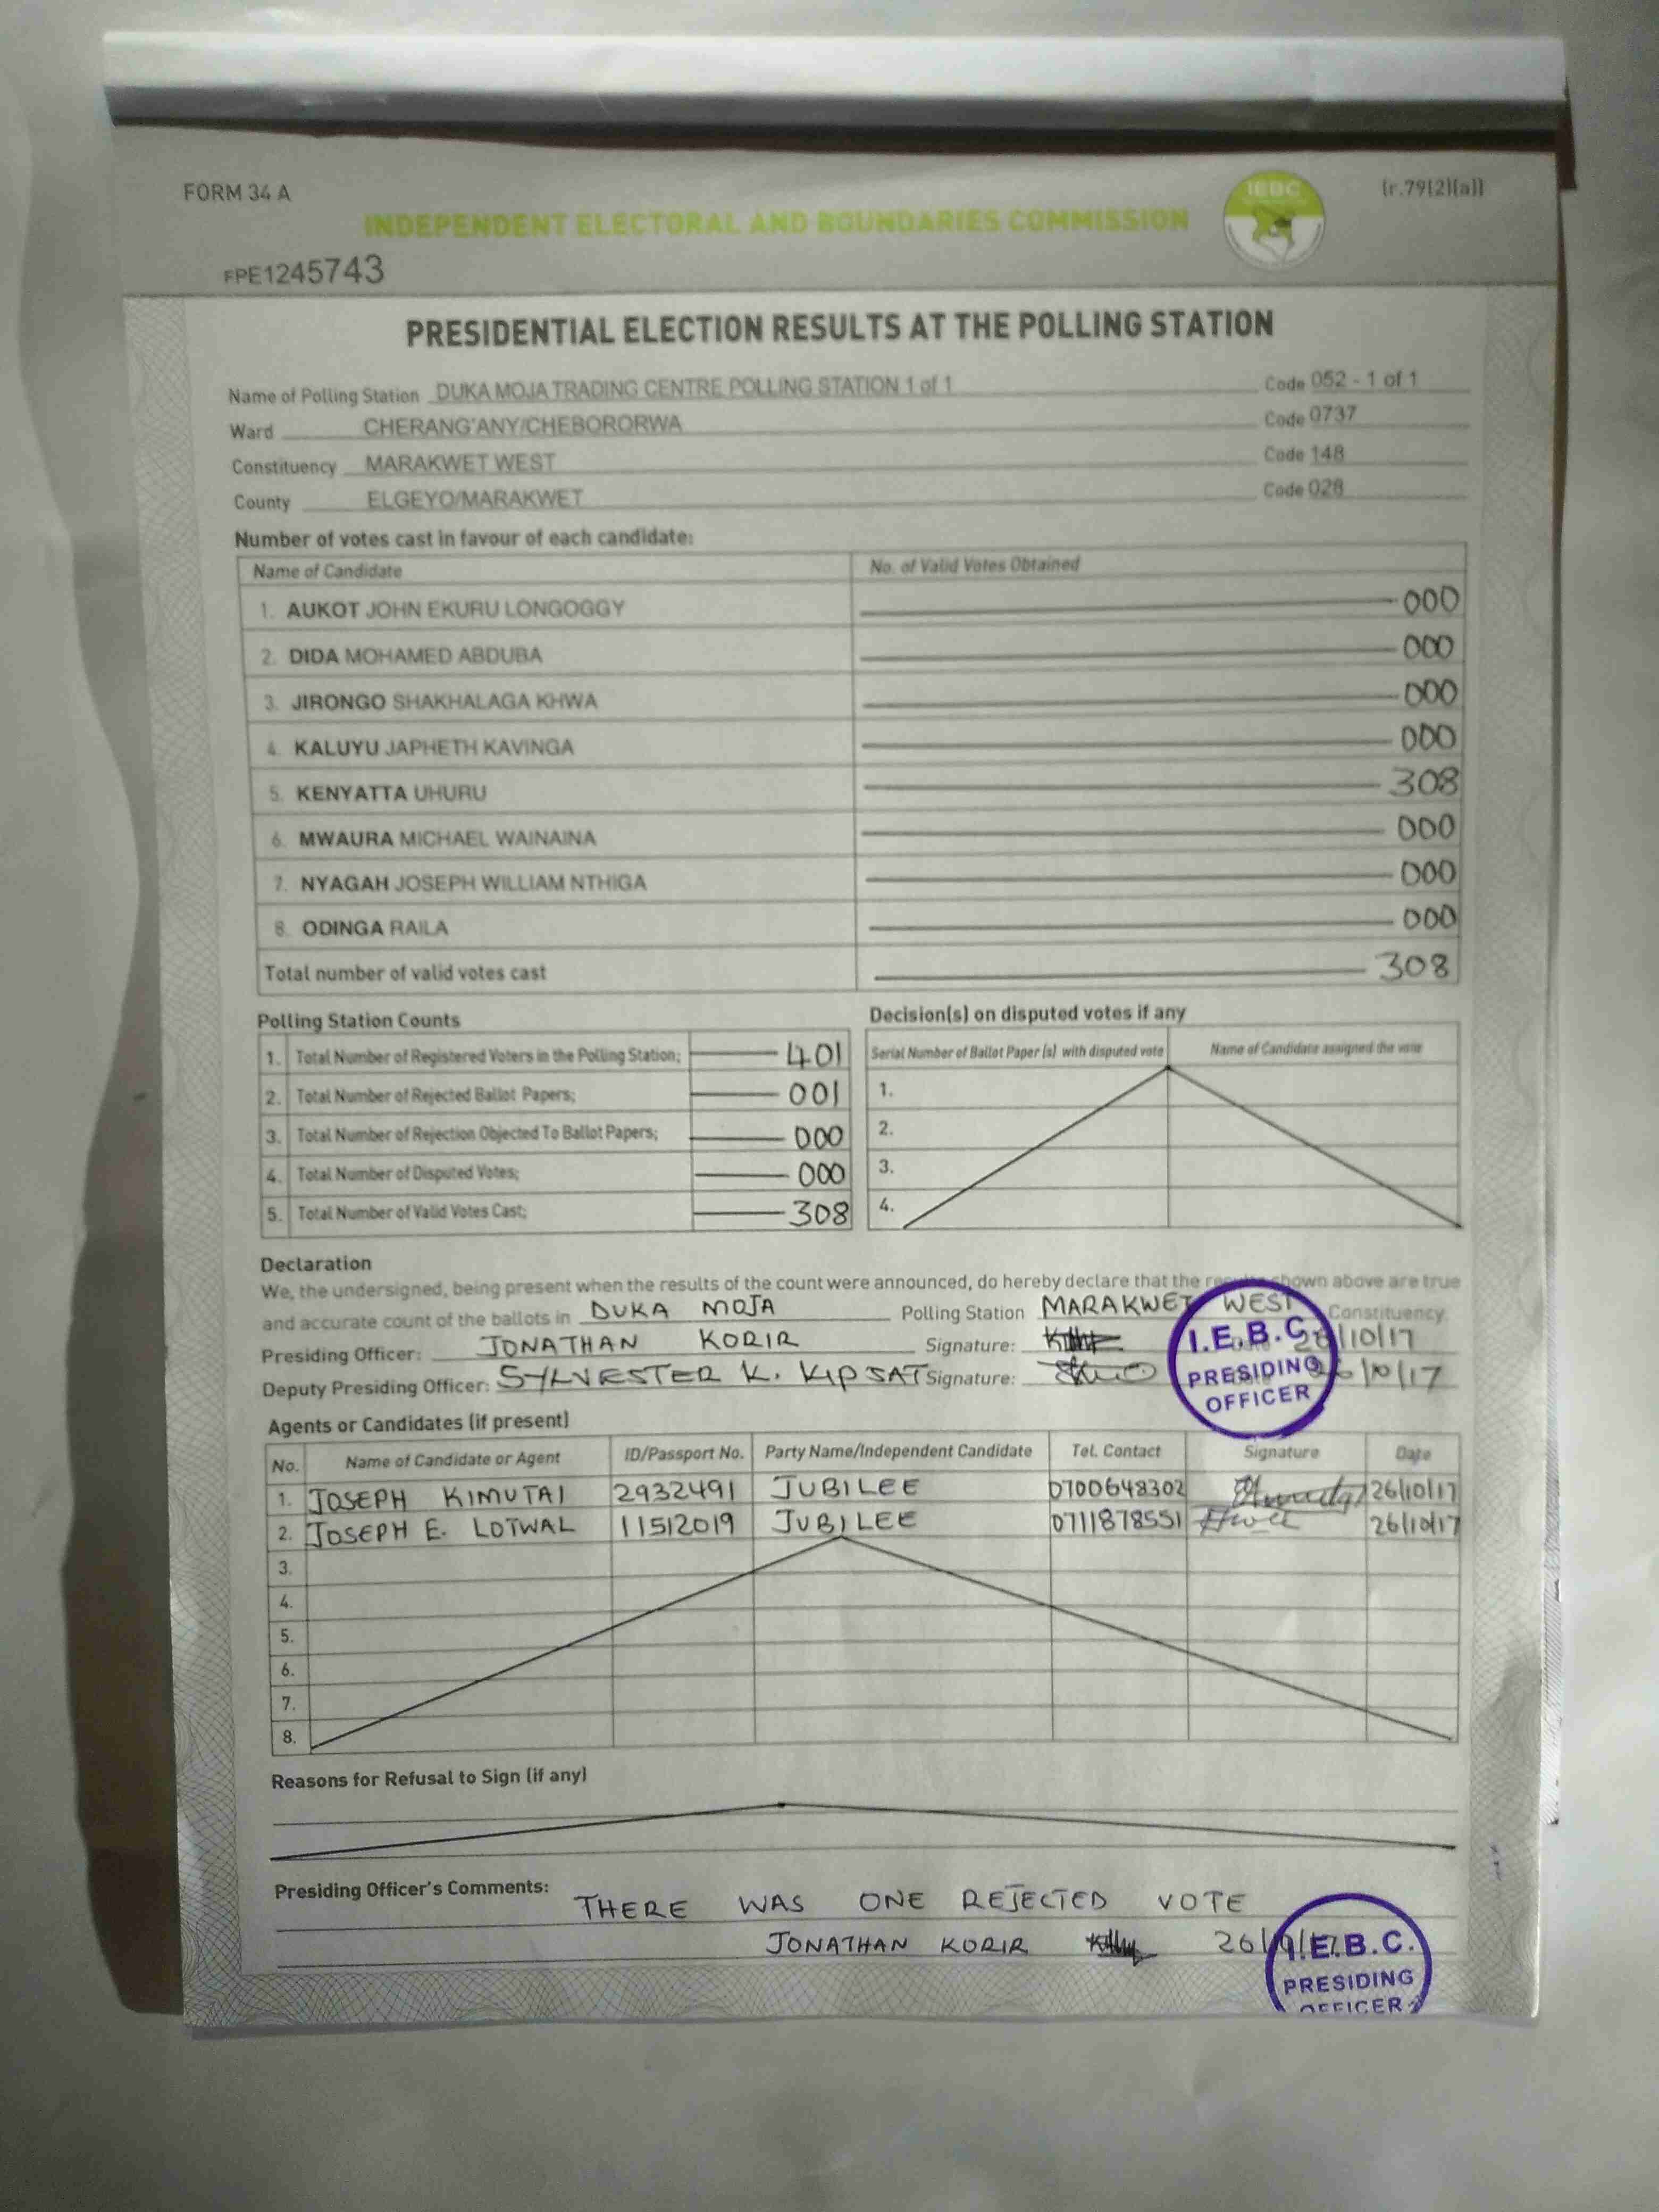 FORM 34 A
IEBC
(r.79(2)(a))
INDEPENDENT ELECTORAL AND BOUNDARIES COMMISSION
FPE1245743
PRESIDENTIAL ELECTION RESULTS AT THE POLLING STATION
Name of Polling Station DUKA MOJA TRADING CENTRE POLLING STATION 1 of 1 Code 052 - 1 of 1
Ward CHERANG'ANY/CHEBORORWA Code 0737
Constituency MARAKWET WEST Code 148
County ELGEYO/MARAKWET Code 028
Number of votes cast in favour of each candidate:
Name of Candidate No. of Valid Votes Obtained
1. AUKOT JOHN EKURU LONGOGGY 000
2. DIDA MOHAMED ABDUBA 000
3. JIRONGO SHAKHALAGA KHWA 000
4. KALUYU JAPHETH KAVINGA 000
5. KENYATTA UHURU 308
6. MWAURA MICHAEL WAINAINA 000
7. NYAGAH JOSEPH WILLIAM NTHIGA 000
8. ODINGA RAILA 000
Total number of valid votes cast 308
Polling Station Counts
1. Total Number of Registered Voters in the Polling Station; 401
2. Total Number of Rejected Ballot Papers; 001
3. Total Number of Rejection Objected To Ballot Papers; 000
4. Total Number of Disputed Votes; 000
5. Total Number of Valid Votes Cast; 308
Decision(s) on disputed votes if any
Serial Number of Ballot Paper (s) with disputed vote Name of Candidate assigned the vote
1.
2.
3.
4.
Declaration
We, the undersigned, being present when the results of the count were announced, do hereby declare that the results shown above are true
and accurate count of the ballots in DUKA MOJA Polling Station MARAKWET WEST Constituency.
Presiding Officer: JONATHAN KORIR Signature: 26/10/17
Deputy Presiding Officer: SYLVESTER K. KIPSAT Signature: 26/10/17
I.E.B.C.
PRESIDING
OFFICER
Agents or Candidates (if present)
No. Name of Candidate or Agent ID/Passport No. Party Name/Independent Candidate Tel. Contact Signature Date
1. JOSEPH KIMUTAI 2932491 JUBILEE 0700648302 26/10/17
2. JOSEPH E. LOTWAL 11512019 JUBILEE 0711878551 26/10/17
3.
4.
5.
6.
7.
8.
Reasons for Refusal to Sign (if any)
Presiding Officer's Comments: THERE WAS ONE REJECTED VOTE
JONATHAN KORIR 26/10/17
I.E.B.C.
PRESIDING
OFFICER